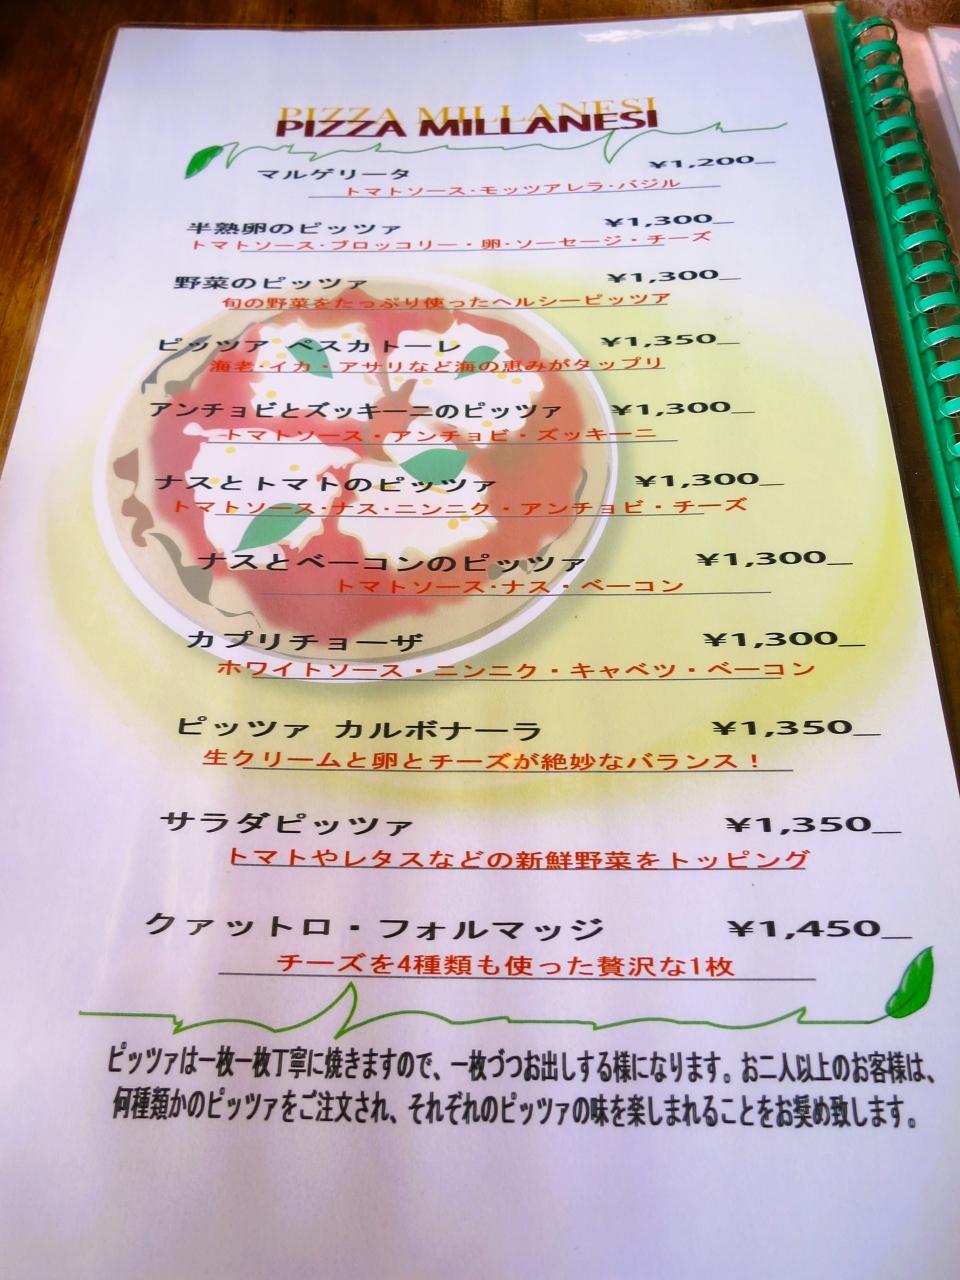 PIZZA MILLANESI
マルゲリータ ¥1,200
トマトソース・モッツアレラ・バジル
半熟卵のピッツァ ¥1,300
トマトソース・ブロッコリー・卵・ソーセージ・チーズ
野菜のピッツァ ¥1,300
旬の野菜をたっぷり使ったヘルシーピッツア
ピッツァ ペスカトーレ ¥1,350
海老・イカ・アサリなど海の恵みがタップリ
アンチョビとズッキーニのピッツァ ¥1,300
トマトソース・アンチョビ・ズッキーニ
ナスとトマトのピッツァ ¥1,300
トマトソース・ナス・ニンニク・アンチョビ・チーズ
ナスとベーコンのピッツァ ¥1,300
トマトソース・ナス・ベーコン
カプリチョーザ ¥1,300
ホワイトソース・ニンニク・キャベツ・ベーコン
ピッツァ カルボナーラ ¥1,350
生クリームと卵とチーズが絶妙なバランス！
サラダピッツァ ¥1,350
トマトやレタスなどの新鮮野菜をトッピング
クァットロ・フォルマッジ ¥1,450
チーズを4種類も使った贅沢な1枚
ピッツァは一枚一枚丁寧に焼きますので、一枚づつお出しする様になります。お二人以上のお客様は、
何種類かのピッツァをご注文され、それぞれのピッツァの味を楽しまれることをお奨め致します。